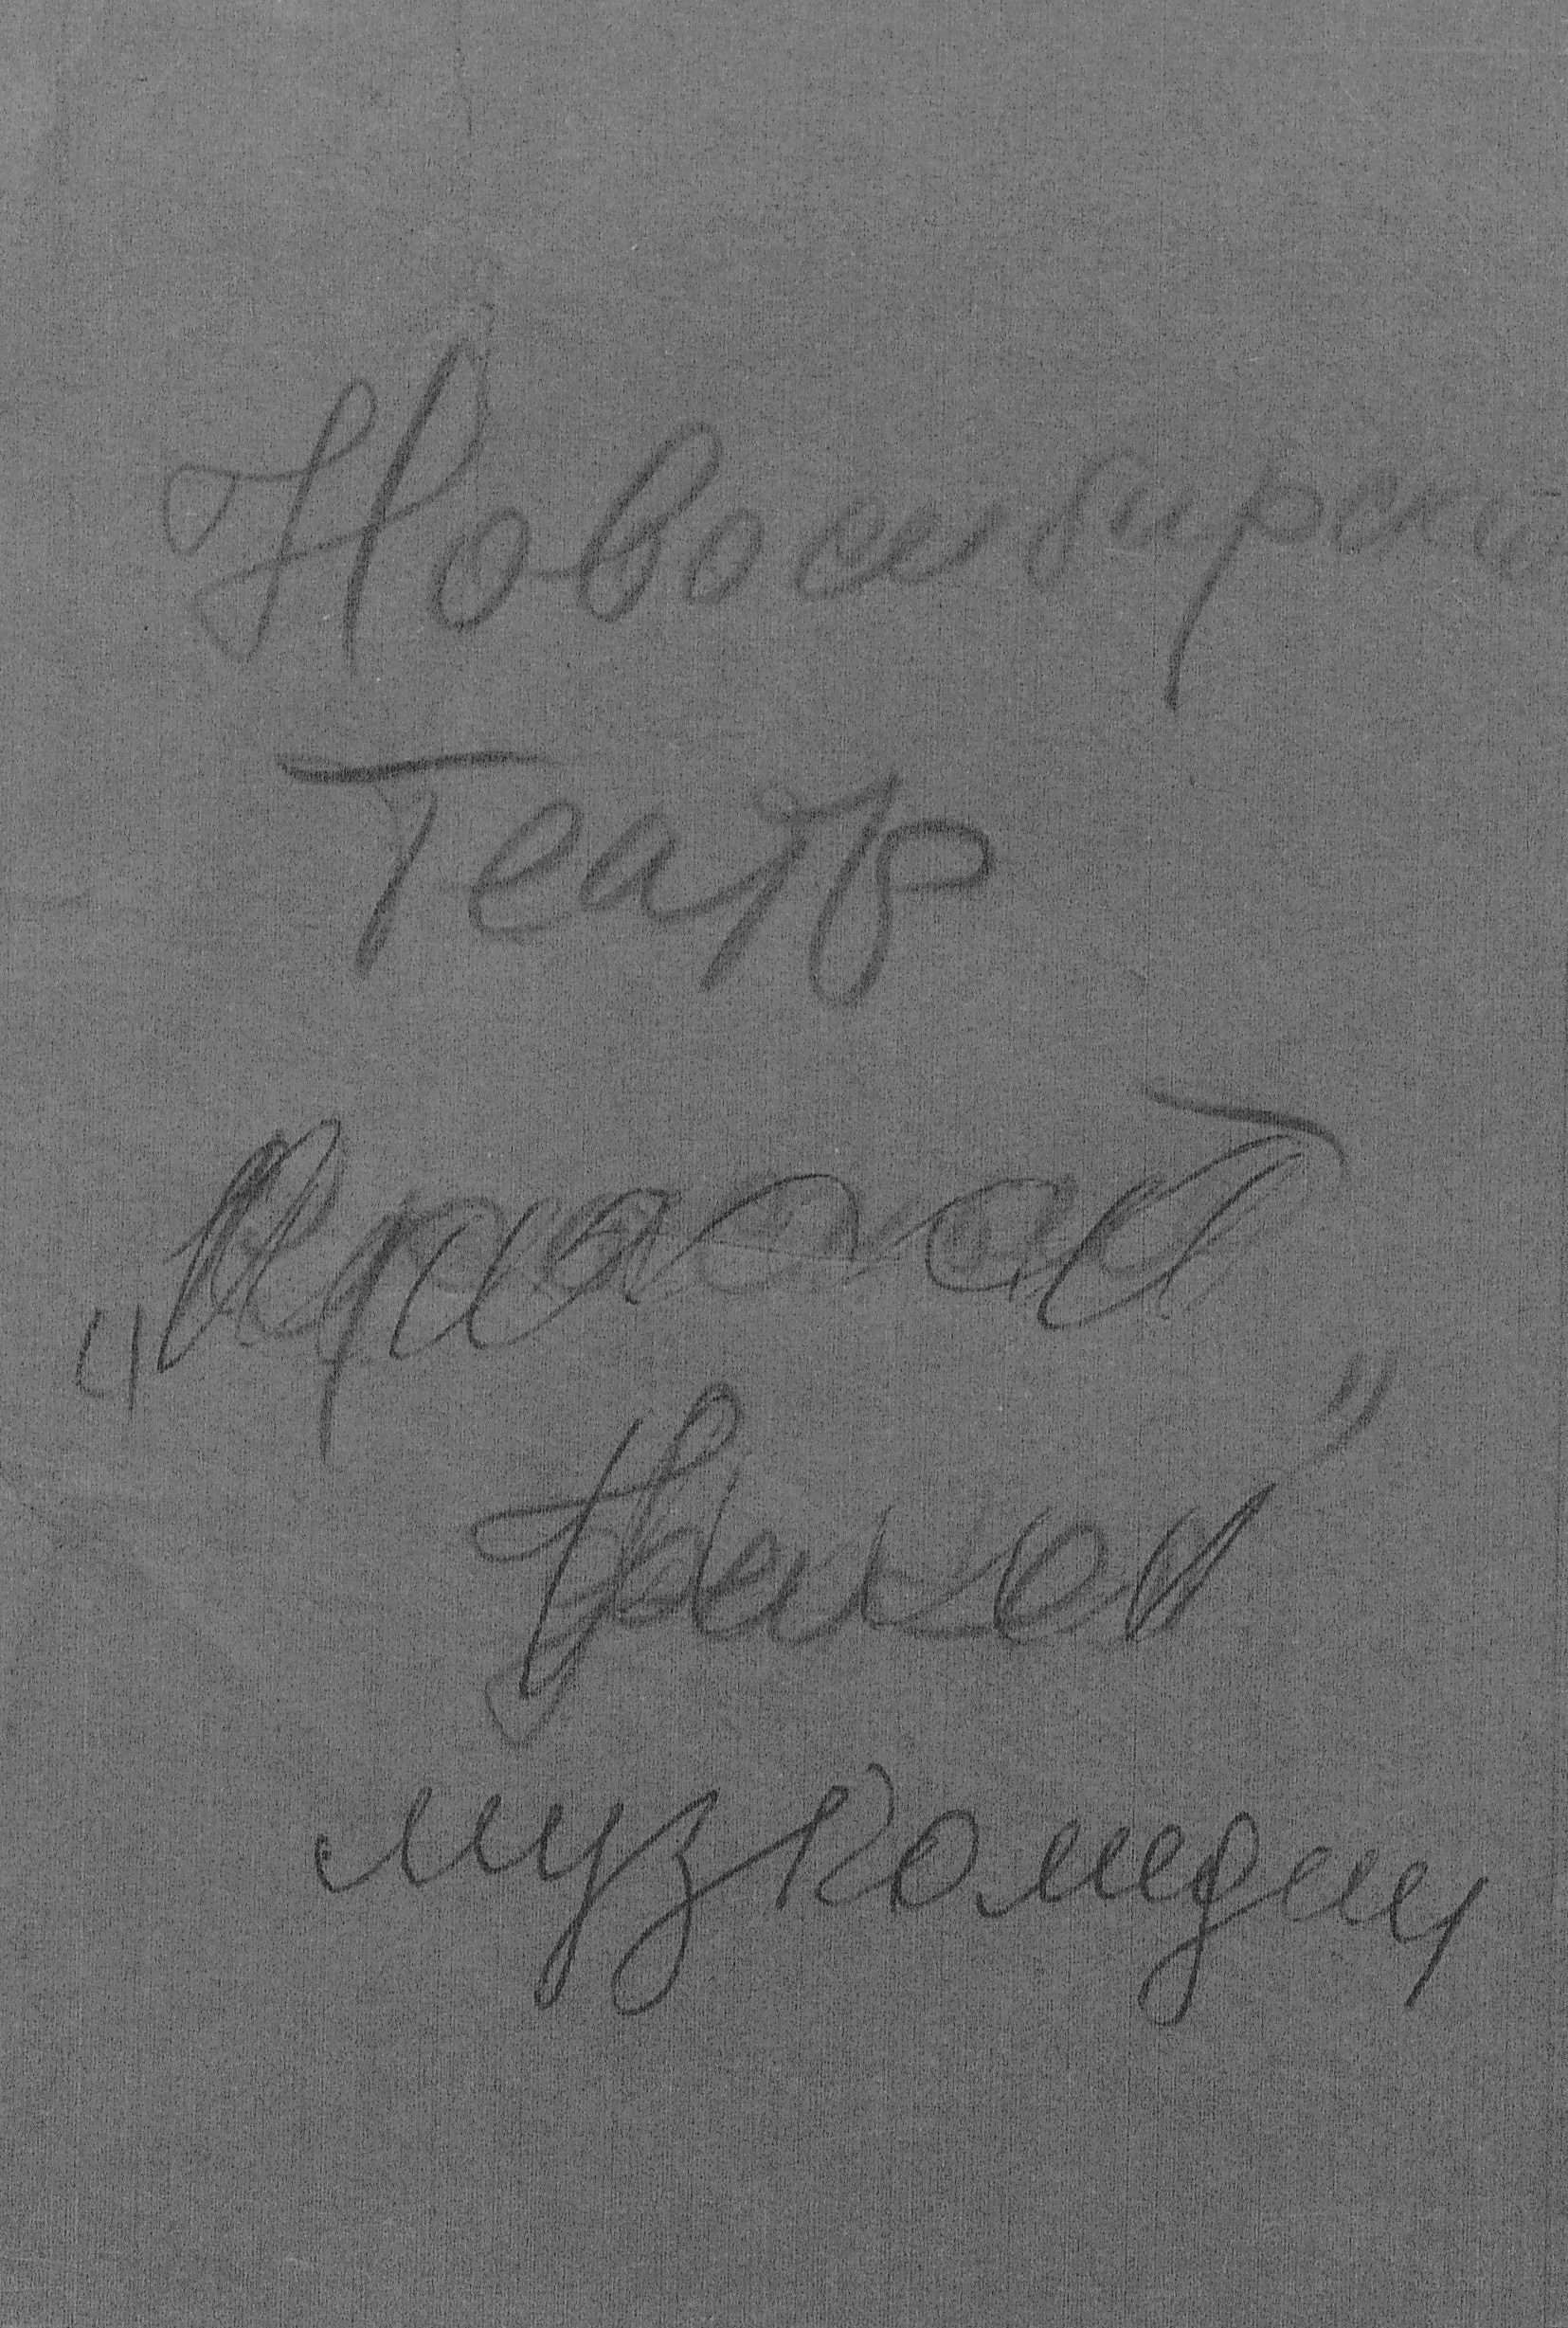 Новосибирски
Театр
„Красный
факел"
музкомедии